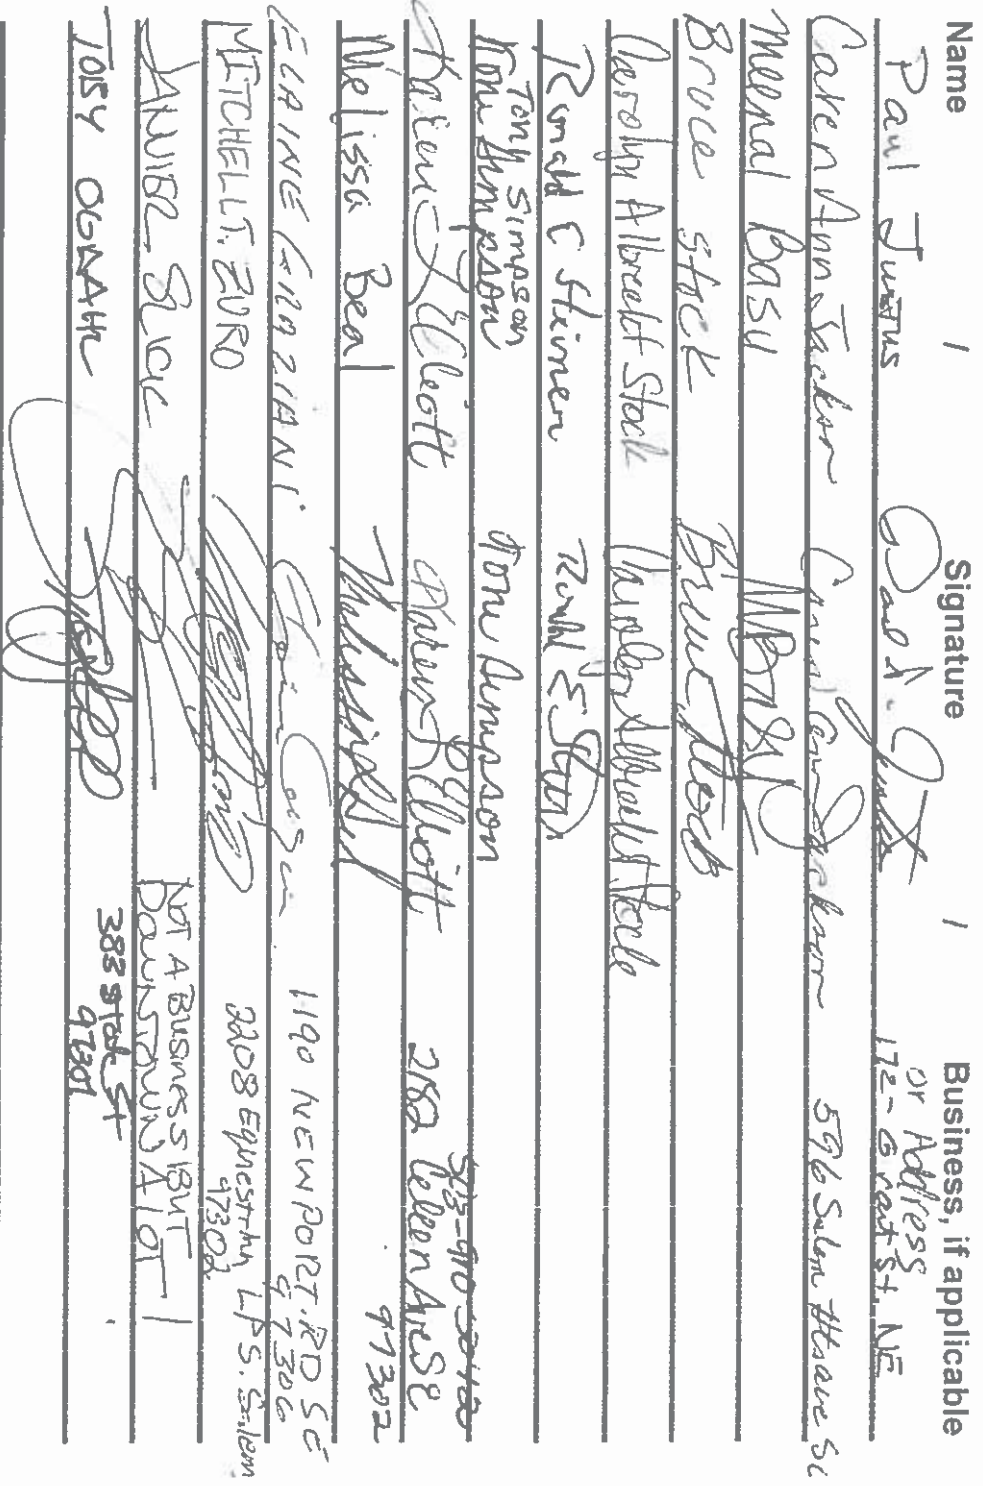 Name / Signature / Business, if applicable
or Address
Paul Justus Paul A. Justus 172- Grant St. NE
Caren Ann Jackson Caren Ann Jackson 596 Salem Hts ave SE
Meenal Basu MBasu
Bruce Stack Bruce Stack
Carolyn Albrecht Stack Carolyn Albrecht Stack
Ronald E Steiner Ronald E Stein
Tony Simpson
Toni Simpson Toni Simpson
Karen J Elliott Karen J Elliott 2182 AveSE
Melissa Beal Melissa Beal 97302
ELAINE GRAZIANI Elaine 1190 NEWPORT.RD SE
97306
MITCHELL T. ZURO 2208 Equestrian LP S. Salem
97302
NOT A BUSINESS BUT
DOWNTOWN A LOT!
TOBY 383 State St
97301